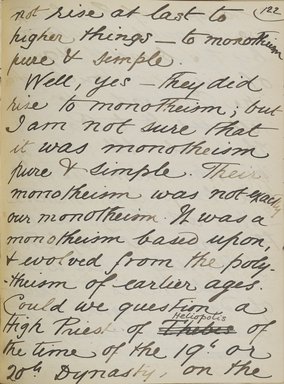 122
not rise at last to
higher things — to monotheism
pure & simple.
Well, yes — they did
rise to monotheism; but
I am not sure that
it was monotheism
pure & simple. Their
monotheism was not exactly
our monotheism. It was a
monotheism based upon,
& evolved from the poly-
-theism of earlier ages.
Could we question a
Heliopolis
High Priest of Thebes of
the time of the 19th or
20th Dynasty, on the